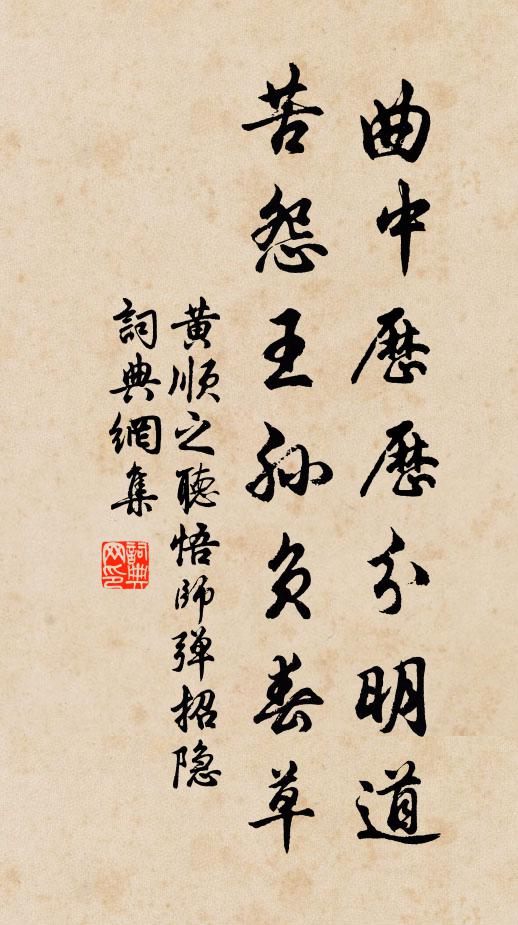 曲中歷歷分明道
苦怨王孫負春草
黃順之聽悟師弹招隐
詞典網集
詞典
网印